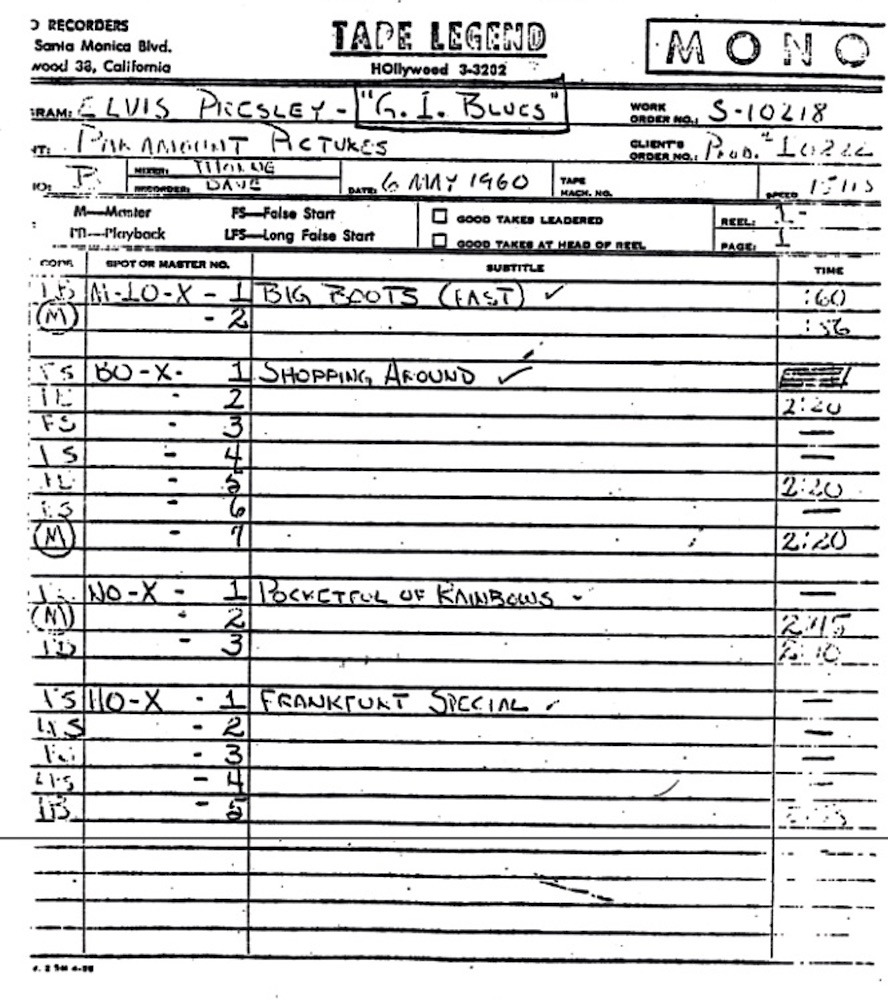 RECORDERS TAPE LEGEND MONO
Santa Monica Blvd.
wood 38, California HOllywood 3-3202
RAM: ELVIS PRESLEY - "G. I. BLUES" WORK ORDER NO.: S-10218
NT: PARAMOUNT PICTURES CLIENT'S ORDER NO.: PROD. #
IO: B MIXER: THORNE RECORDER: DAVE DATE: 6 MAY 1960 TAPE MACH. NO. SPEED 15 IPS
M—Master FS—False Start GOOD TAKES LEADERED REEL: 1
PB—Playback LFS—Long False Start GOOD TAKES AT HEAD OF REEL PAGE: 1
CODE SPOT OR MASTER NO. SUBTITLE TIME
PB - 1 BIG BOOTS (FAST) ✓ :60
(M) - 2 :56
FS BO-X- 1 SHOPPING AROUND ✓
PB - 2 2:20
FS - 3 —
FS - 4 —
PB - 5 2:20
FS - 6 —
(M) - 7 2:20
NO-X - 1 POCKETFUL OF RAINBOWS —
(M) - 2
PB - 3
FS HO-X - 1 FRANKFURT SPECIAL —
LFS - 2 —
- 3 —
LFS - 4 —
PB - 5